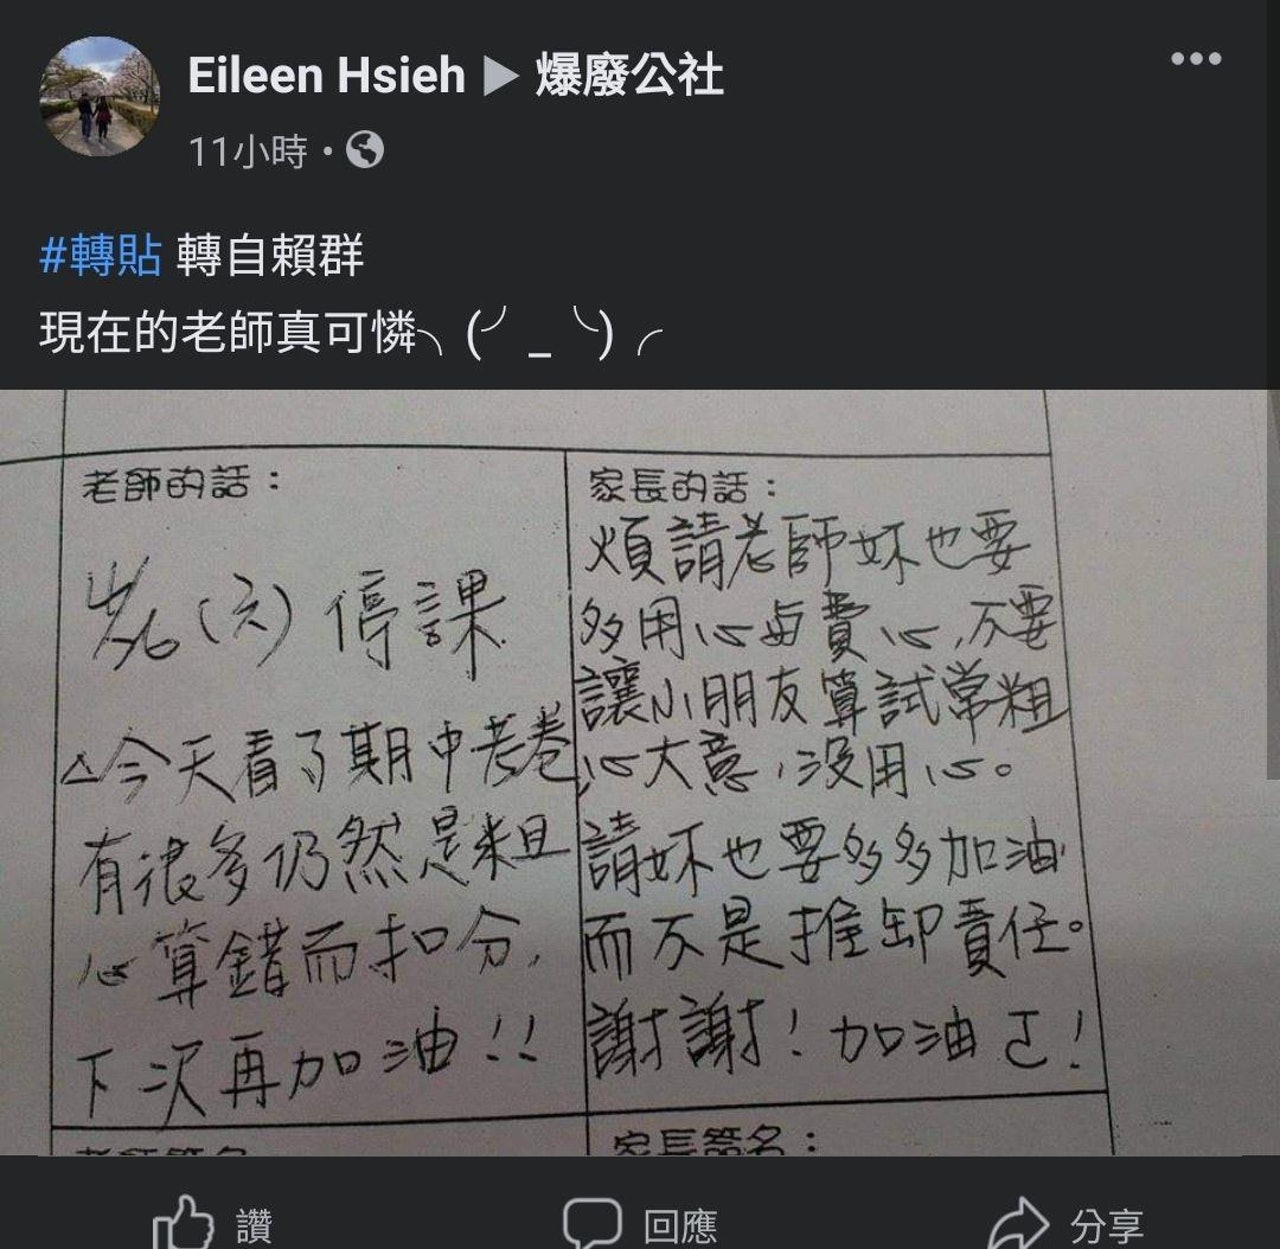 Eileen Hsieh ▶ 爆廢公社
11小時
#轉貼 轉自賴群
現在的老師真可憐╮(╯_╰)╭
老師的話：
(六)停課
△今天看了期中考卷
有很多仍然是粗
心算錯而扣分,
下次再加油!!
家長的話：
煩請老師妳也要
多用心與費心,不要
讓小朋友算試常粗
心大意,沒用心。
請妳也要多多加油
而不是推卸責任。
謝謝!加油!
家長簽名：
讚
回應
分享